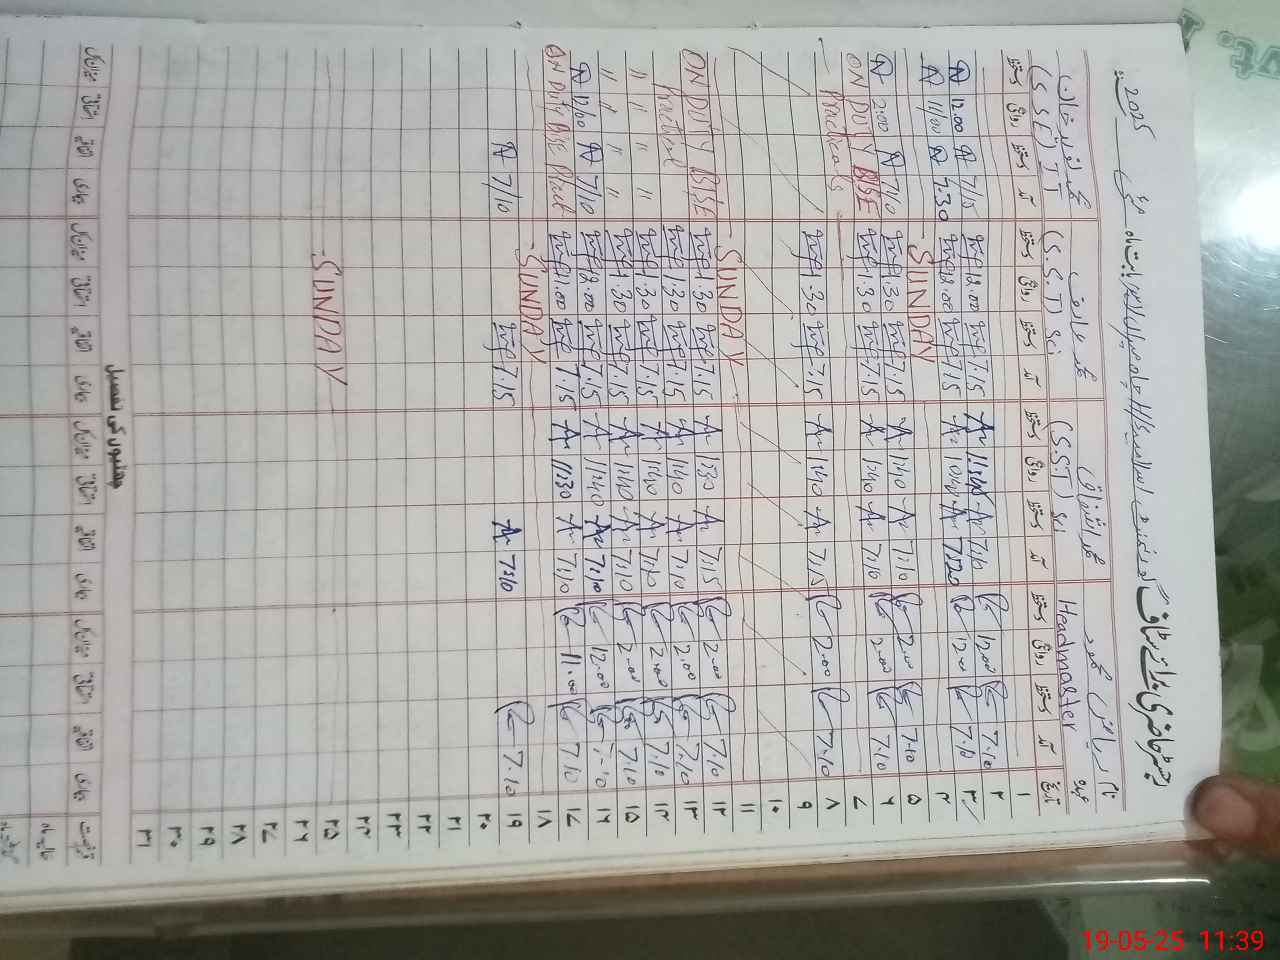 رجسٹر حاضری برائے سٹاف گورنمنٹ اسلامیہ H/S بابت ماہ مئی سنہ 2025
نام
عہدہ Headmaster (S.S.T) Sci (S.S.T) Sci (S.S.E) I.T
تاریخ آمد دستخط روانگی دستخط آمد دستخط روانگی دستخط آمد دستخط روانگی دستخط آمد دستخط روانگی دستخط
۱
۲ 7.10 12.00 7:10 11:45 7.15 12.00 7/15 12.00
۳ 7.10 12.00 7:20 10:40 7.15 12.00 7.30 11/00
۴ SUNDAY
۵ 7.10 2.00 7:10 1:40 7.15 1.30 7/10 2:00
۶ 7.10 2.00 7:10 1:40 7.15 1.30 ON DUTY BISE
۷ Practicals
۸ 7.10 2.00 7:15 1:40 7.15 1.30
۹
۱۰
۱۱ SUNDAY
۱۲ 7.10 2.00 7:15 1:30 7.15 1.30 ON DUTY BISE
۱۳ 7.10 2.00 7:10 1:40 7.15 1.30 Practical
۱۴ 7.10 2.00 7:10 1:40 7.15 1.30 " " "
۱۵ 7.10 2.00 7:10 1:40 7.15 1.30 " " "
۱۶ 12.00 7:10 11:40 7.15 12.00 7/10 12/00
۱۷ 7.10 11.00 7:10 11:30 7.15 11.00 ON Duty Bise Pract
۱۸ SUNDAY
۱۹ 7.10 7:10 7.15 7/10
۲۰
۲۱
۲۲
۲۳
۲۴
۲۵ SUNDAY
۲۶
۲۷
۲۸
۲۹
۳۰
۳۱
چھٹیوں کی تفصیل
قسم رخصت بیماری اتفاقیہ استحقاقی میزان کل بیماری اتفاقیہ استحقاقی میزان کل بیماری اتفاقیہ استحقاقی میزان کل بیماری اتفاقیہ استحقاقی میزان کل
حالیہ ماہ
vt.
19-05-25 11:39